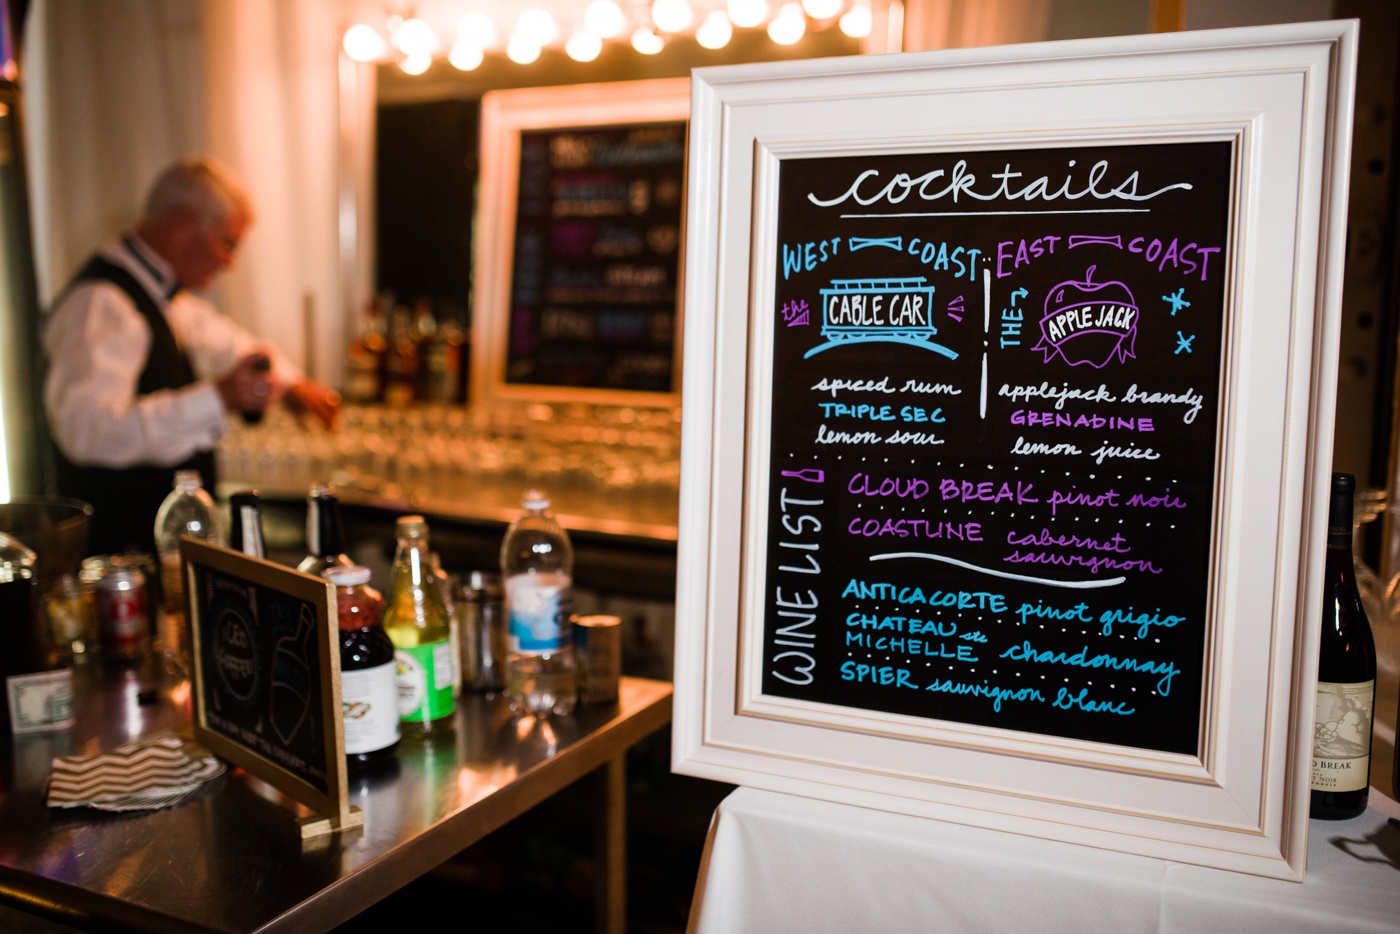 cocktails
WEST COAST
the
CABLE CAR
spiced rum
TRIPLE SEC
lemon sour
EAST COAST
THE
APPLE JACK
applejack brandy
GRENADINE
lemon juice
WINE LIST
CLOUD BREAK pinot noir
COASTLINE cabernet
sauvignon
ANTICA CORTE pinot grigio
CHATEAU ste
MICHELLE chardonnay
SPIER sauvignon blanc
BREAK